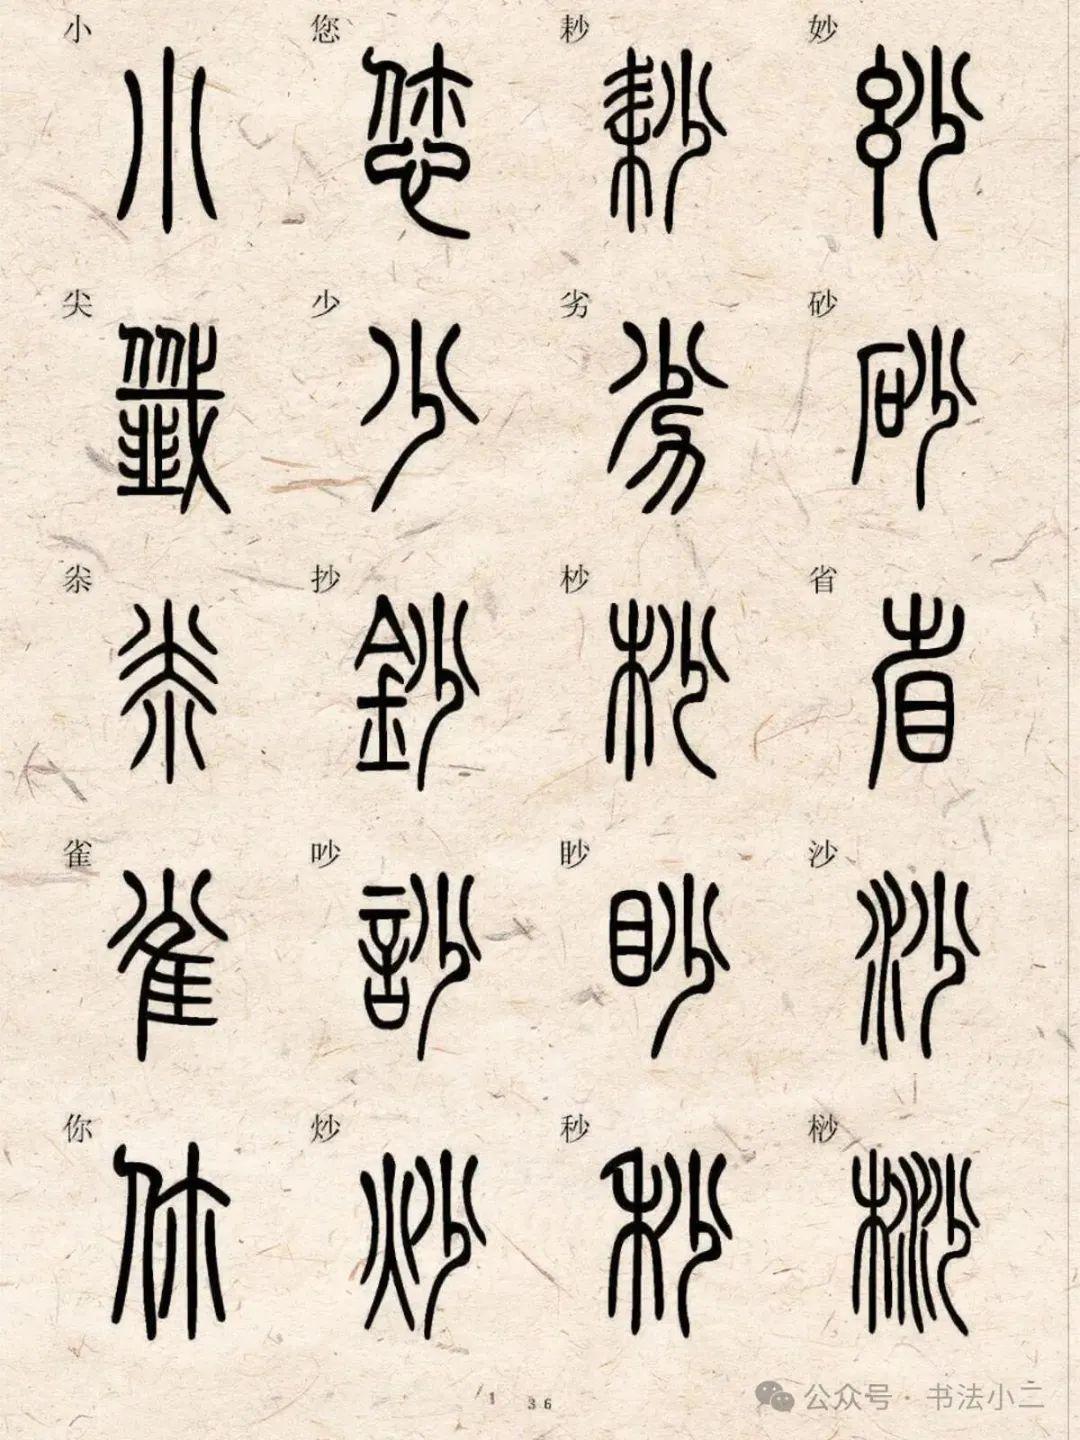 小 您 耖 妙
尖 少 劣 砂
尜 抄 杪 省
雀 吵 眇 沙
你 炒 秒 桫
1 36
公众号 · 书法小二